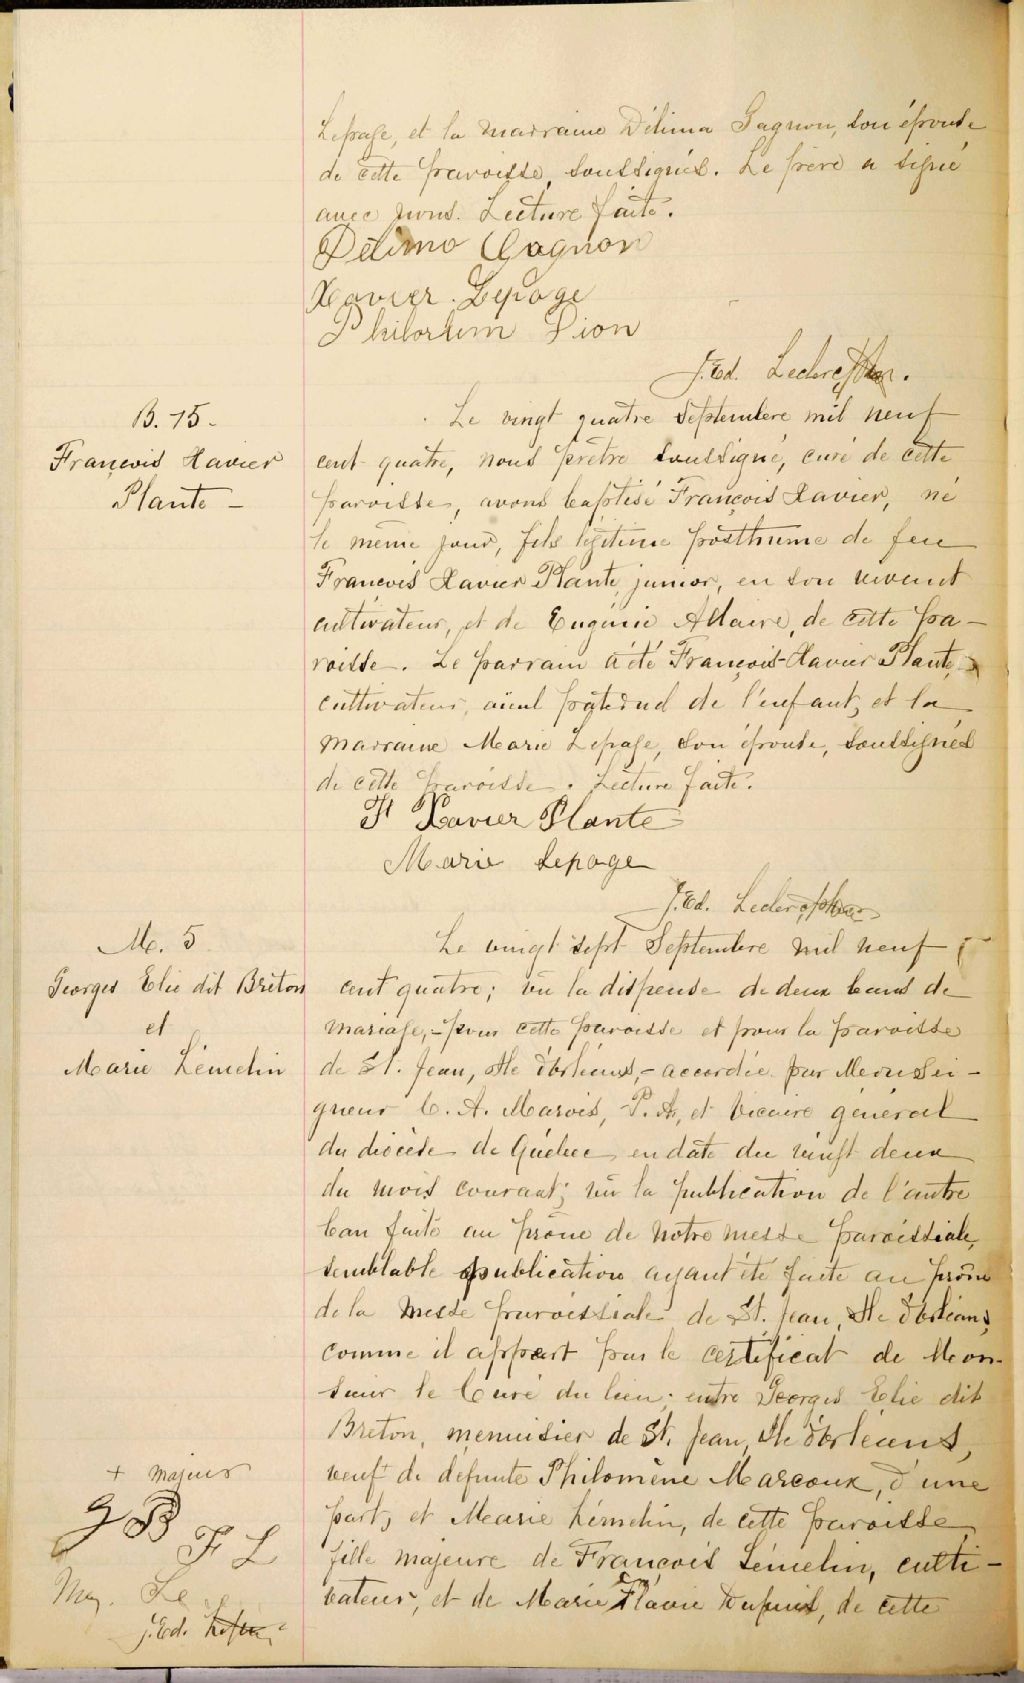 Lepage, et la marraine Délima Gagnon, son épouse
de cette paroisse, soussignés. Le père a signé
avec nous. Lecture faite.
Délima Gagnon
Xavier Lepage
Dion
J. Ed. Leclerc Ptre.
B. 15.
François Xavier
Plante -
Le vingt quatre Septembre mil neuf
cent quatre, nous prêtre soussigné, curé de cette
paroisse, avons baptisé François Xavier, né
le même jour, fils légitime posthume de feu
François Xavier Plante, junior, en son vivant
cultivateur, et de Eugénie Allaire, de cette pa-
roisse. Le parrain a été François-Xavier Plante,
cultivateur, aïeul paternel de l'enfant, et la
marraine Marie Lepage, son épouse, soussignés
de cette paroisse. Lecture faite.
F Xavier Plante
Marie Lepage
J. Ed. Leclerc Ptre
M. 5
Georges Elie dit Breton
et
Marie Lémelin
Le vingt sept Septembre mil neuf
cent quatre; vu la dispense de deux bans de
mariage, - pour cette paroisse et pour la paroisse
de St. Jean, Ile d'Orléans, - accordée par Monsei-
gneur C. A. Marois, P. A, et Vicaire général
du diocèse de Québec en date du vingt deux
du mois courant; vu la publication de l'autre
ban faite au prône de notre messe paroissiale,
semblable publication ayant été faite au prône
de la messe paroissiale de St. Jean, Ile d'Orléans,
comme il appert par le certificat de Mon-
sieur le Curé du lieu; entre Georges Elie dit
Breton, menuisier de St. Jean, Ile d'Orléans,
veuf de défunte Philomène Marcoux, d'une
part, et Marie Lémelin, de cette paroisse,
fille majeure de François Lémelin, culti-
vateur, et de Marie Flavie Dupuis, de cette
+ majeur
G B
F L
J. Ed.